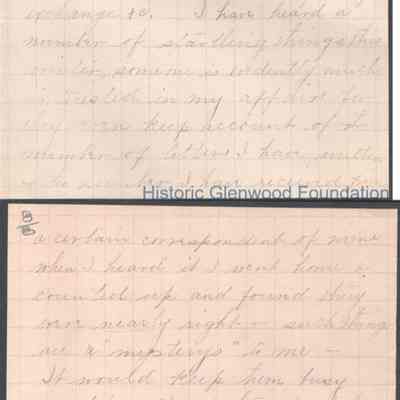 exchange &c. I have heard a
number of startling things this
winter, someone is evidently much
in my affairs
they can keep account of the
number of letters I have written
I have received from
Historic Glenwood Foundation
B/B
a certain correspondent of mine
when I heard it I went home &
counted up and found they
were nearly right - such things
are a "mysterys" to me -
It would keep them busy